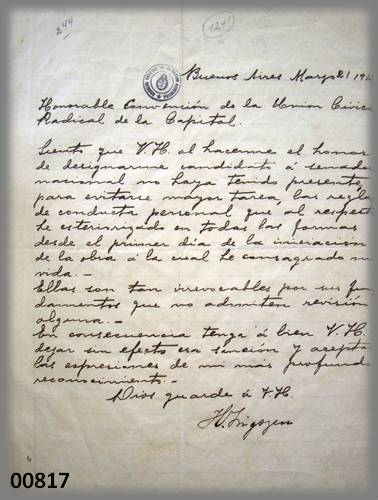 244
1241
Buenos Aires Marzo 21 19
Honorable Convención de la Union Civica
Radical de la Capital.
Siento que V.H. al hacerme el honor
de designarme candidato á senador
nacional no haya tenido presente,
para evitarse mayor tarea, las regla
de conducta personal que al respecto
he esteriorizado en todas las formas
desde el primer dia de la iniciacion
de la obra á la cual he consagrado mi
vida. -
Ellas son tan irrevocables por sus fun
damentos que no admiten revisión
alguna. -
En consecuencia tenga á bien V.H.
dejar sin efecto esa sancion y acepta
las espresiones de mi mas profundo
reconocimiento. -
Dios guarde á V.H.
H. Irigoyen
00817